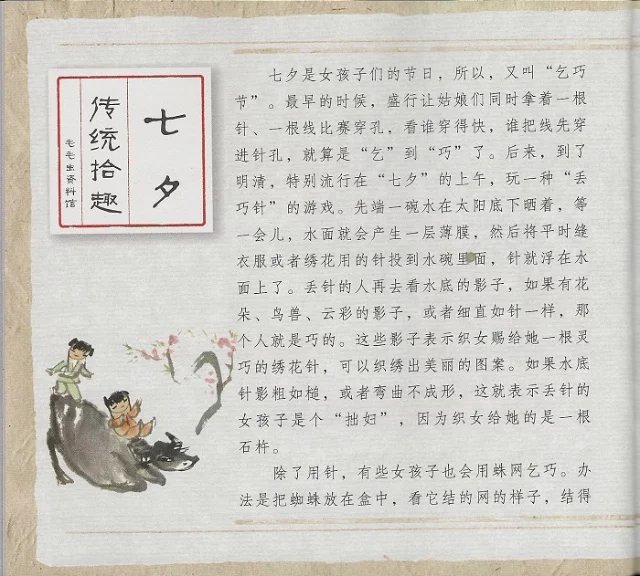 七夕
传统拾趣
毛毛虫资料馆
七夕是女孩子们的节日，所以，又叫“乞巧
节”。最早的时候，盛行让姑娘们同时拿着一根
针、一根线比赛穿孔，看谁穿得快，谁把线先穿
进针孔，就算是“乞”到“巧”了。后来，到了
明清，特别流行在“七夕”的上午，玩一种“丢
巧针”的游戏。先端一碗水在太阳底下晒着，等
一会儿，水面就会产生一层薄膜，然后将平时缝
衣服或者绣花用的针投到水碗里面，针就浮在水
面上了。丢针的人再去看水底的影子，如果有花
朵、鸟兽、云彩的影子，或者细直如针一样，那
个人就是巧的。这些影子表示织女赐给她一根灵
巧的绣花针，可以织绣出美丽的图案。如果水底
针影粗如槌，或者弯曲不成形，这就表示丢针的
女孩子是个“拙妇”，因为织女给她的是一根
石杵。
除了用针，有些女孩子也会用蛛网乞巧。办
法是把蜘蛛放在盒中，看它结的网的样子，结得